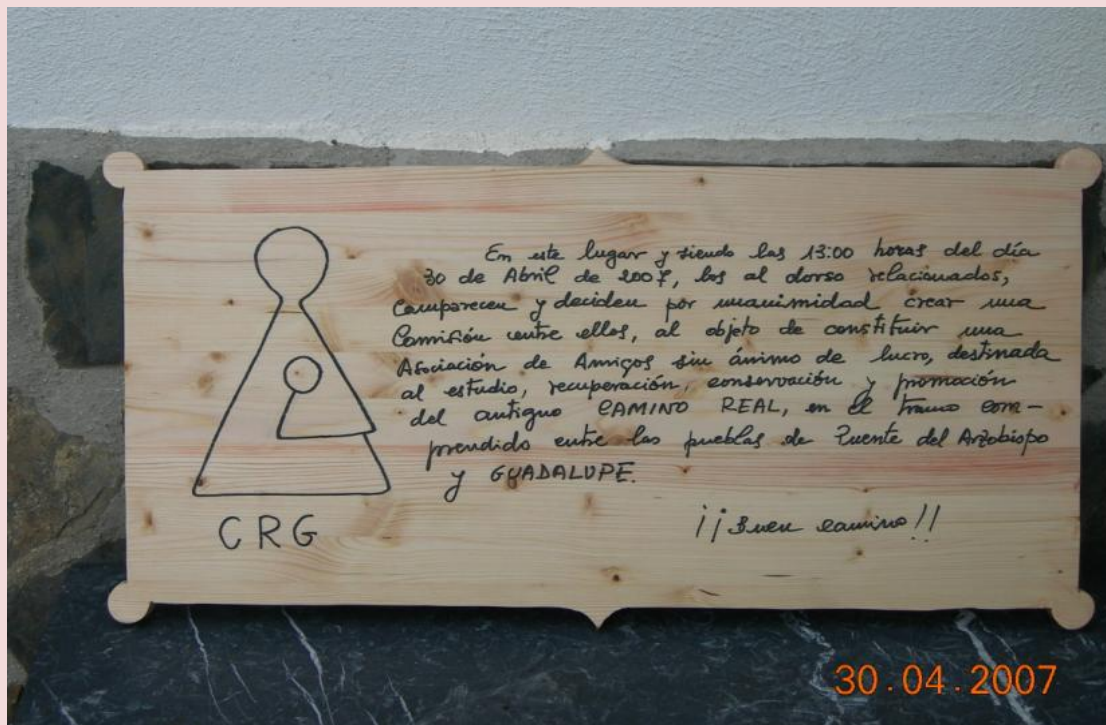 En este lugar y siendo las 13:00 horas del día
30 de Abril de 2007, los al dorso relacionados,
Comparecen y deciden por unanimidad crear una
Comisión entre ellos, al objeto de constituir una
Asociación de Amigos sin ánimo de lucro, destinada
al estudio, recuperación, conservación y promoción
del antiguo CAMINO REAL, en el tramo com-
prendido entre las pueblas de Puente del Arzobispo
y GUADALUPE.
¡¡Buen camino!!
CRG
30.04.2007